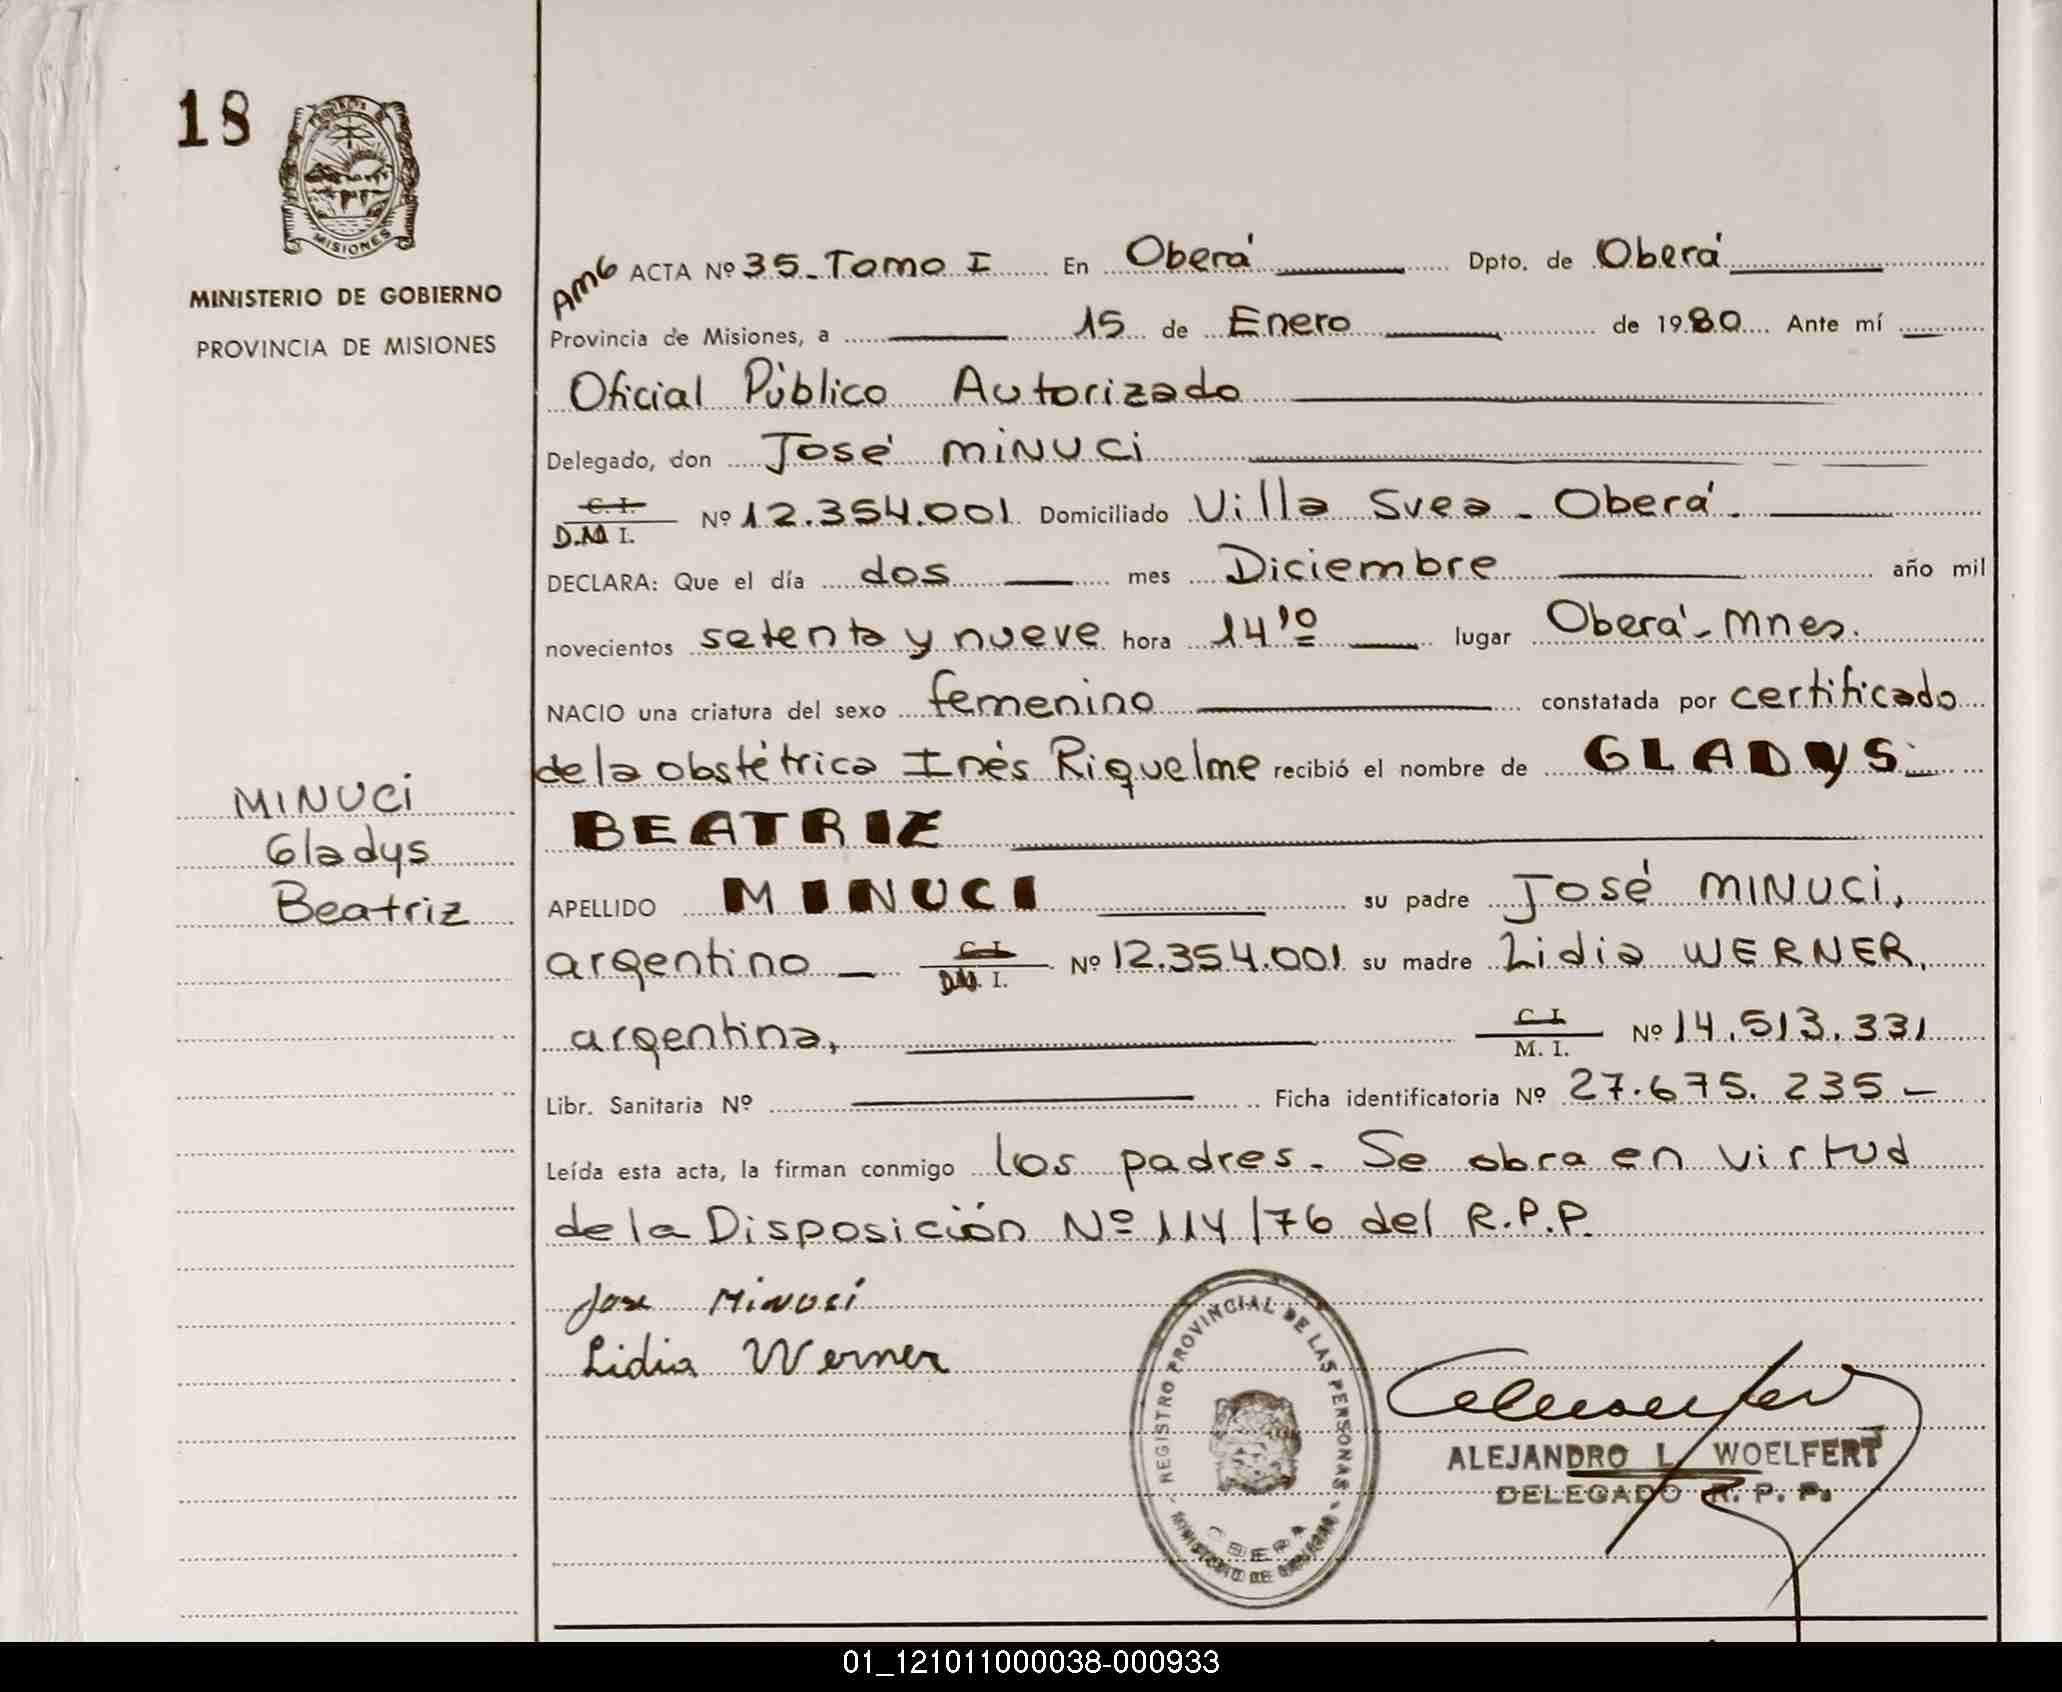 18
PROVINCIA DE
MISIONES
MINISTERIO DE GOBIERNO
PROVINCIA DE MISIONES
AMG ACTA Nº 35-Tomo I En Oberá Dpto. de Oberá
Provincia de Misiones, a 15 de Enero de 1980 Ante mí
Oficial Público Autorizado
Delegado, don José MINUCI
C. I.
D.N.I. Nº 12.354.001 Domiciliado Villa Svea - Oberá.
DECLARA: Que el día dos mes Diciembre año mil
novecientos setenta y nueve hora 14,10 lugar Oberá - Mnes.
NACIO una criatura del sexo femenino constatada por certificado
de la obstétrica Inés Riquelme recibió el nombre de GLADYS
BEATRIZ
MINUCI
Gladys
Beatriz
APELLIDO MINUCI su padre José MINUCI,
argentino C. I. D.N.I. Nº 12.354.001 su madre Lidia WERNER,
argentina, C. I. M. I. Nº 14.513.331
Libr. Sanitaria Nº Ficha identificatoria Nº 27.675.235 -
Leída esta acta, la firman conmigo los padres. Se obra en virtud
de la Disposición Nº 114/76 del R.P.P.
Jose Minuci
Lidia Werner
REGISTRO PROVINCIAL DE LAS PERSONAS
OBERA
MINISTERIO DE GOBIERNO
ALEJANDRO L. WOELFERT
DELEGADO R. P. P.
01_121011000038-000933